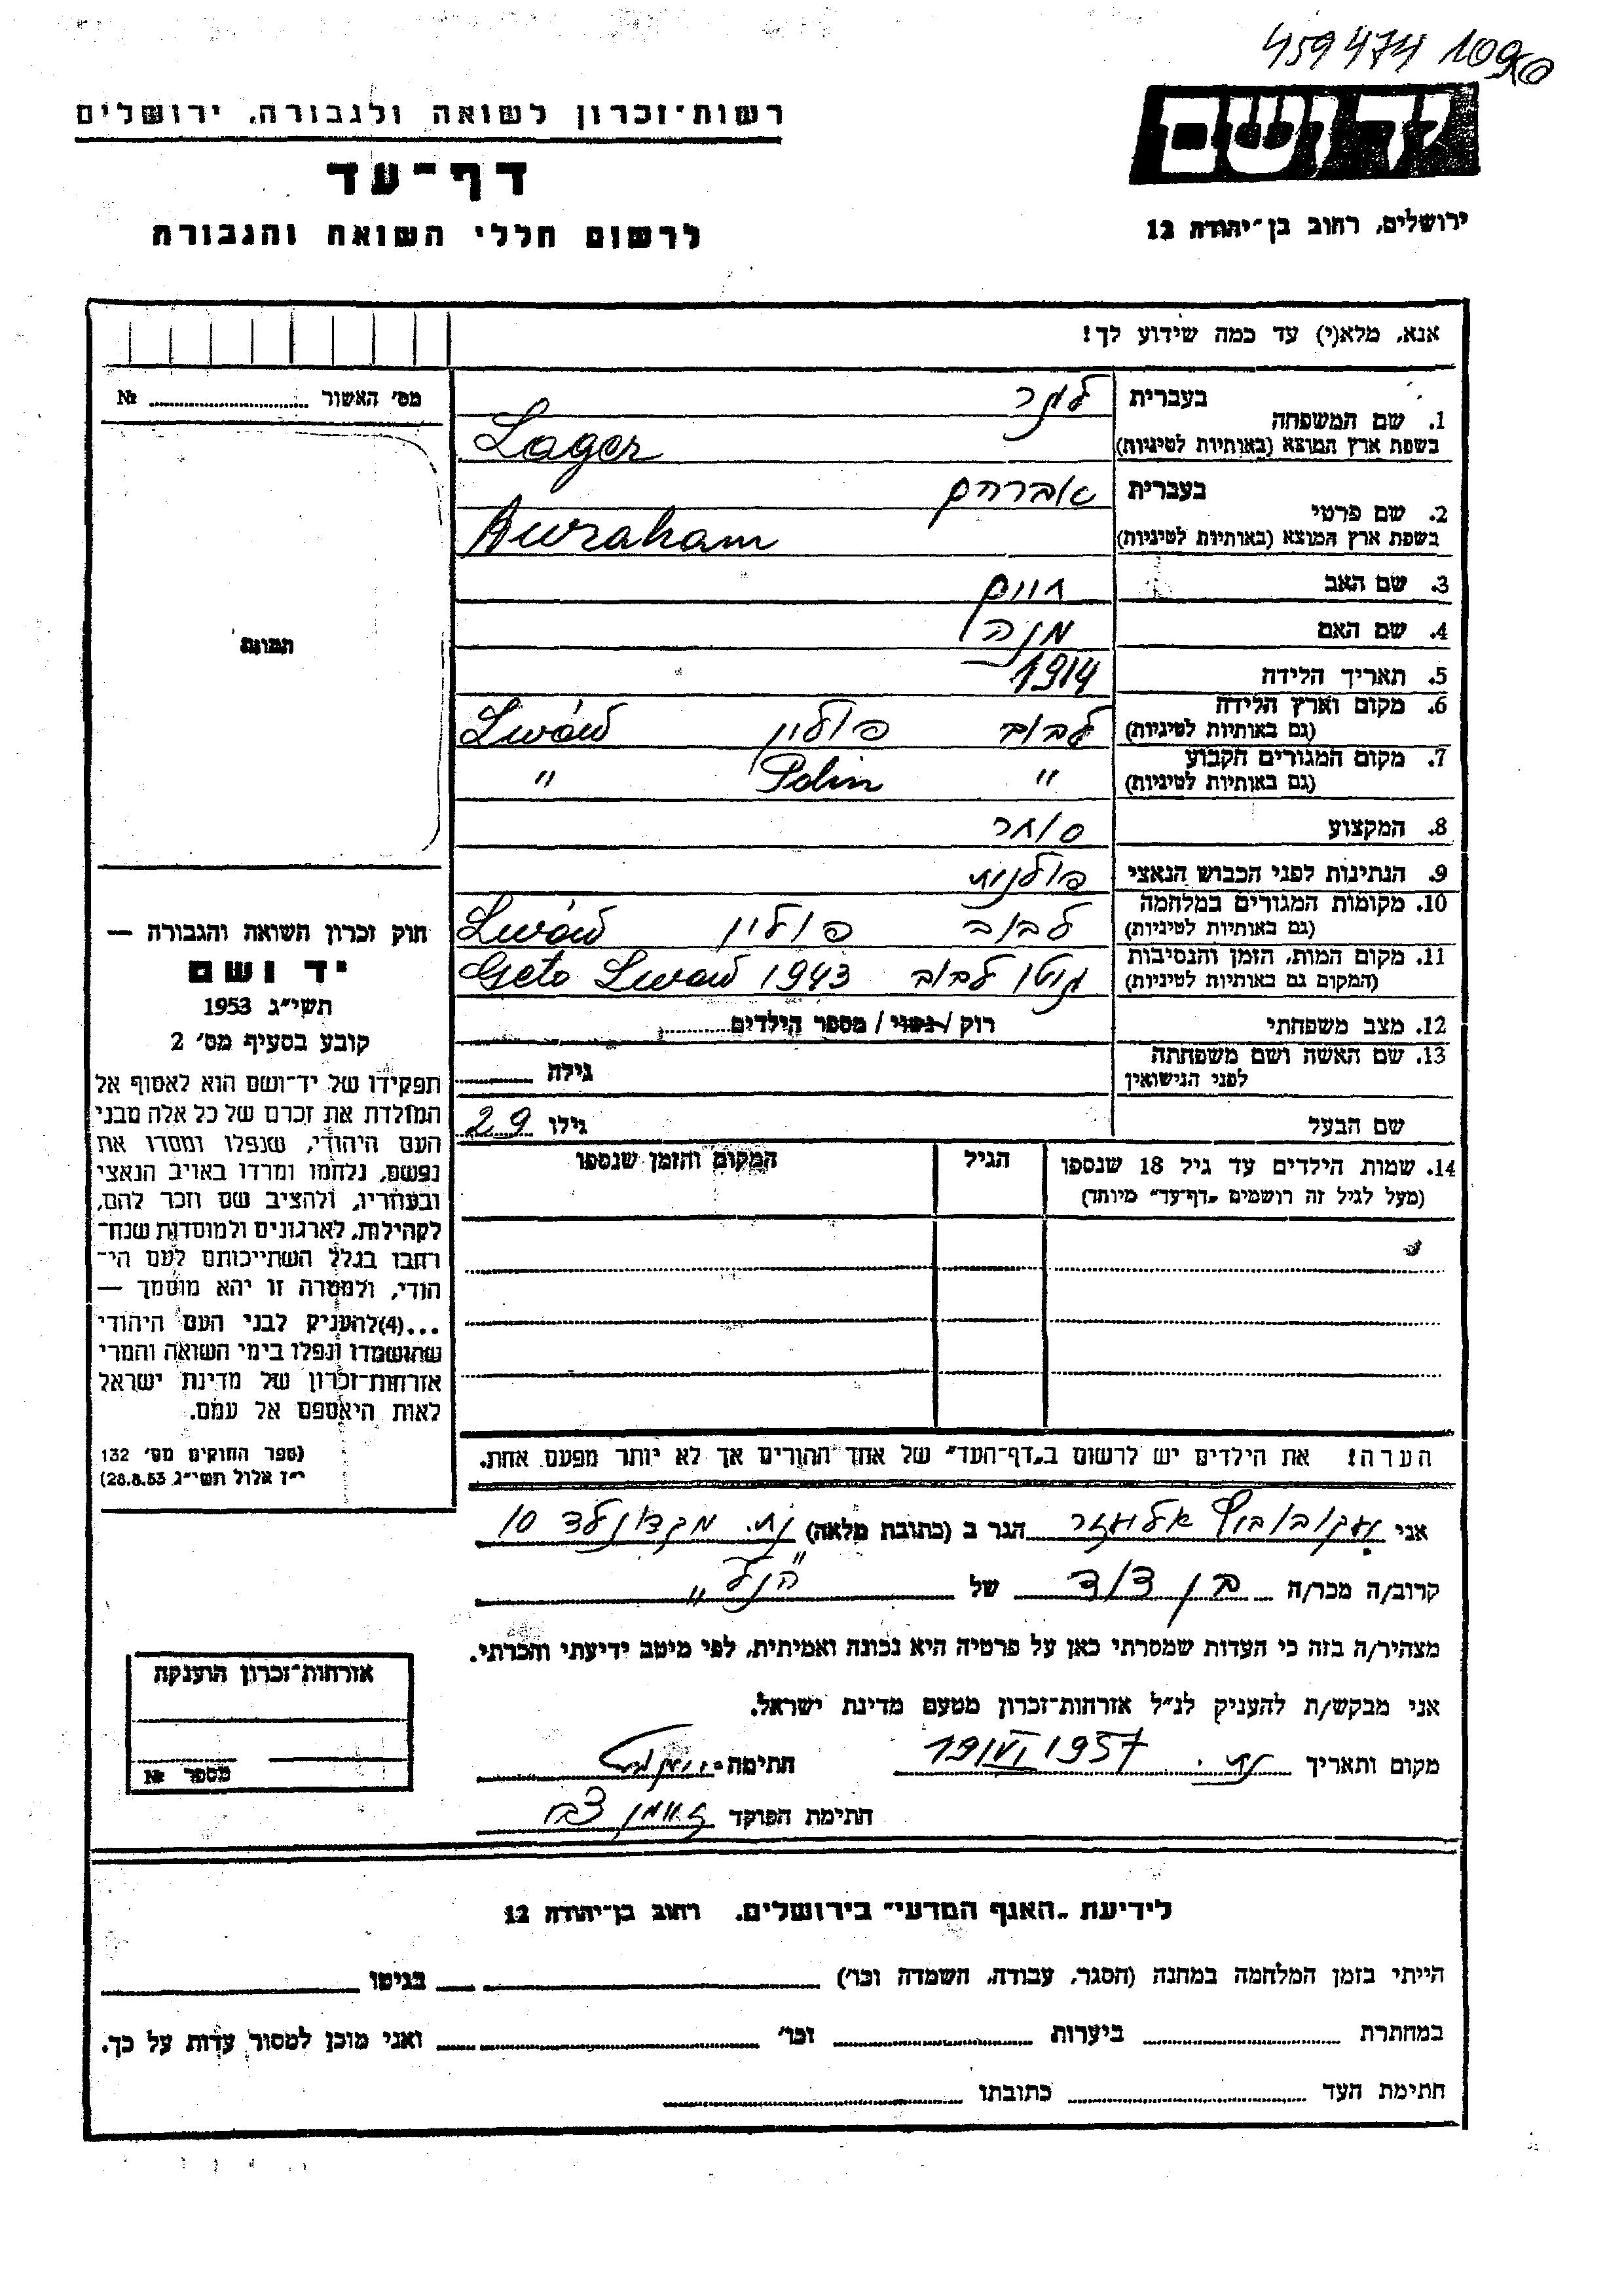 459474 109
רשות־זכרון לשואה ולגבורה, ירושלים
ידושם
דף־עד
לרשום חללי השואה והגבורה
ירושלים, רחוב בן־יהודה 12
אנא, מלא(י) עד כמה שידוע לך!
מס׳ האשור ........ №
תמונה
חוק זכרון השואה והגבורה —
יד ושם
תשי״ג 1953
קובע בסעיף מס׳ 2
תפקידו של יד־ושם הוא לאסוף אל
המולדת את זכרם של כל אלה מבני
העם היהודי, שנפלו ומסרו את
נפשם, נלחמו ומרדו באויב הנאצי
ובעוזריו, ולהציב שם וזכר להם,
לקהילות, לארגונים ולמוסדות שנח־
רחבו בגלל השתייכותם לעם הי־
הודי, ולמטרה זו יהא מוסמך —
...(4)להעניק לבני העם היהודי
שהושמדו ונפלו בימי השואה והמרי
אזרחות־זכרון של מדינת ישראל
לאות היאספם אל עמם.
(ספר החוקים מס׳ 132
י״ז אלול תשי״ג 28.8.53)
בעברית לגר
1. שם המשפחה
בשפת ארץ המוצא (באותיות לטיניות) Lager
בעברית אברהם
2. שם פרטי
בשפת ארץ המוצא (באותיות לטיניות) Awraham
3. שם האב חיים
4. שם האם
5. תאריך הלידה 1914
6. מקום וארץ הלידה
(גם באותיות לטיניות) לבוב פולין Lwów
7. מקום המגורים הקבוע
(גם באותיות לטיניות) " Polin "
8. המקצוע סוחר
9. הנתינות לפני הכבוש הנאצי פולנית
10. מקומות המגורים במלחמה
(גם באותיות לטיניות) לבוב פולין Lwów
11. מקום המות, הזמן והנסיבות
(המקום גם באותיות לטיניות) גטו לבוב 1943 Geto Lwow
12. מצב משפחתי רוק / נשוי / מספר הילדים
13. שם האשה ושם משפחתה
לפני הנישואין גילה
שם הבעל גילו 29
14. שמות הילדים עד גיל 18 שנספו הגיל המקום והזמן שנספו
(מעל לגיל זה רושמים „דף־עד״ מיוחד)
הערה! את הילדים יש לרשום ב„דף־העד״ של אחד ההורים אך לא יותר מפעם אחת.
אני יעקובוביץ אליעזר הגר ב (כתובת מלאה) נת. מקדונלד 10
קרוב/ה מכר/ה בן דוד של "הנ״ל"
מצהיר/ה בזה כי העדות שמסרתי כאן על פרטיה היא נכונה ואמיתית, לפי מיטב ידיעתי והכרתי.
אני מבקש/ת להעניק לנ״ל אזרחות־זכרון מטעם מדינת ישראל.
מקום ותאריך נת. 19/VI 1957 חתימה
חתימת הפוקד
אזרחות־זכרון הוענקה
מספר №
לידיעת „האגף המדעי״ בירושלים, רחוב בן־יהודה 12
הייתי בזמן המלחמה במחנה (הסגר, עבודה, השמדה וכו׳) בגיטו
במחתרת ביערות וכו׳ ואני מוכן למסור עדות על כך.
חתימת העד כתובתו